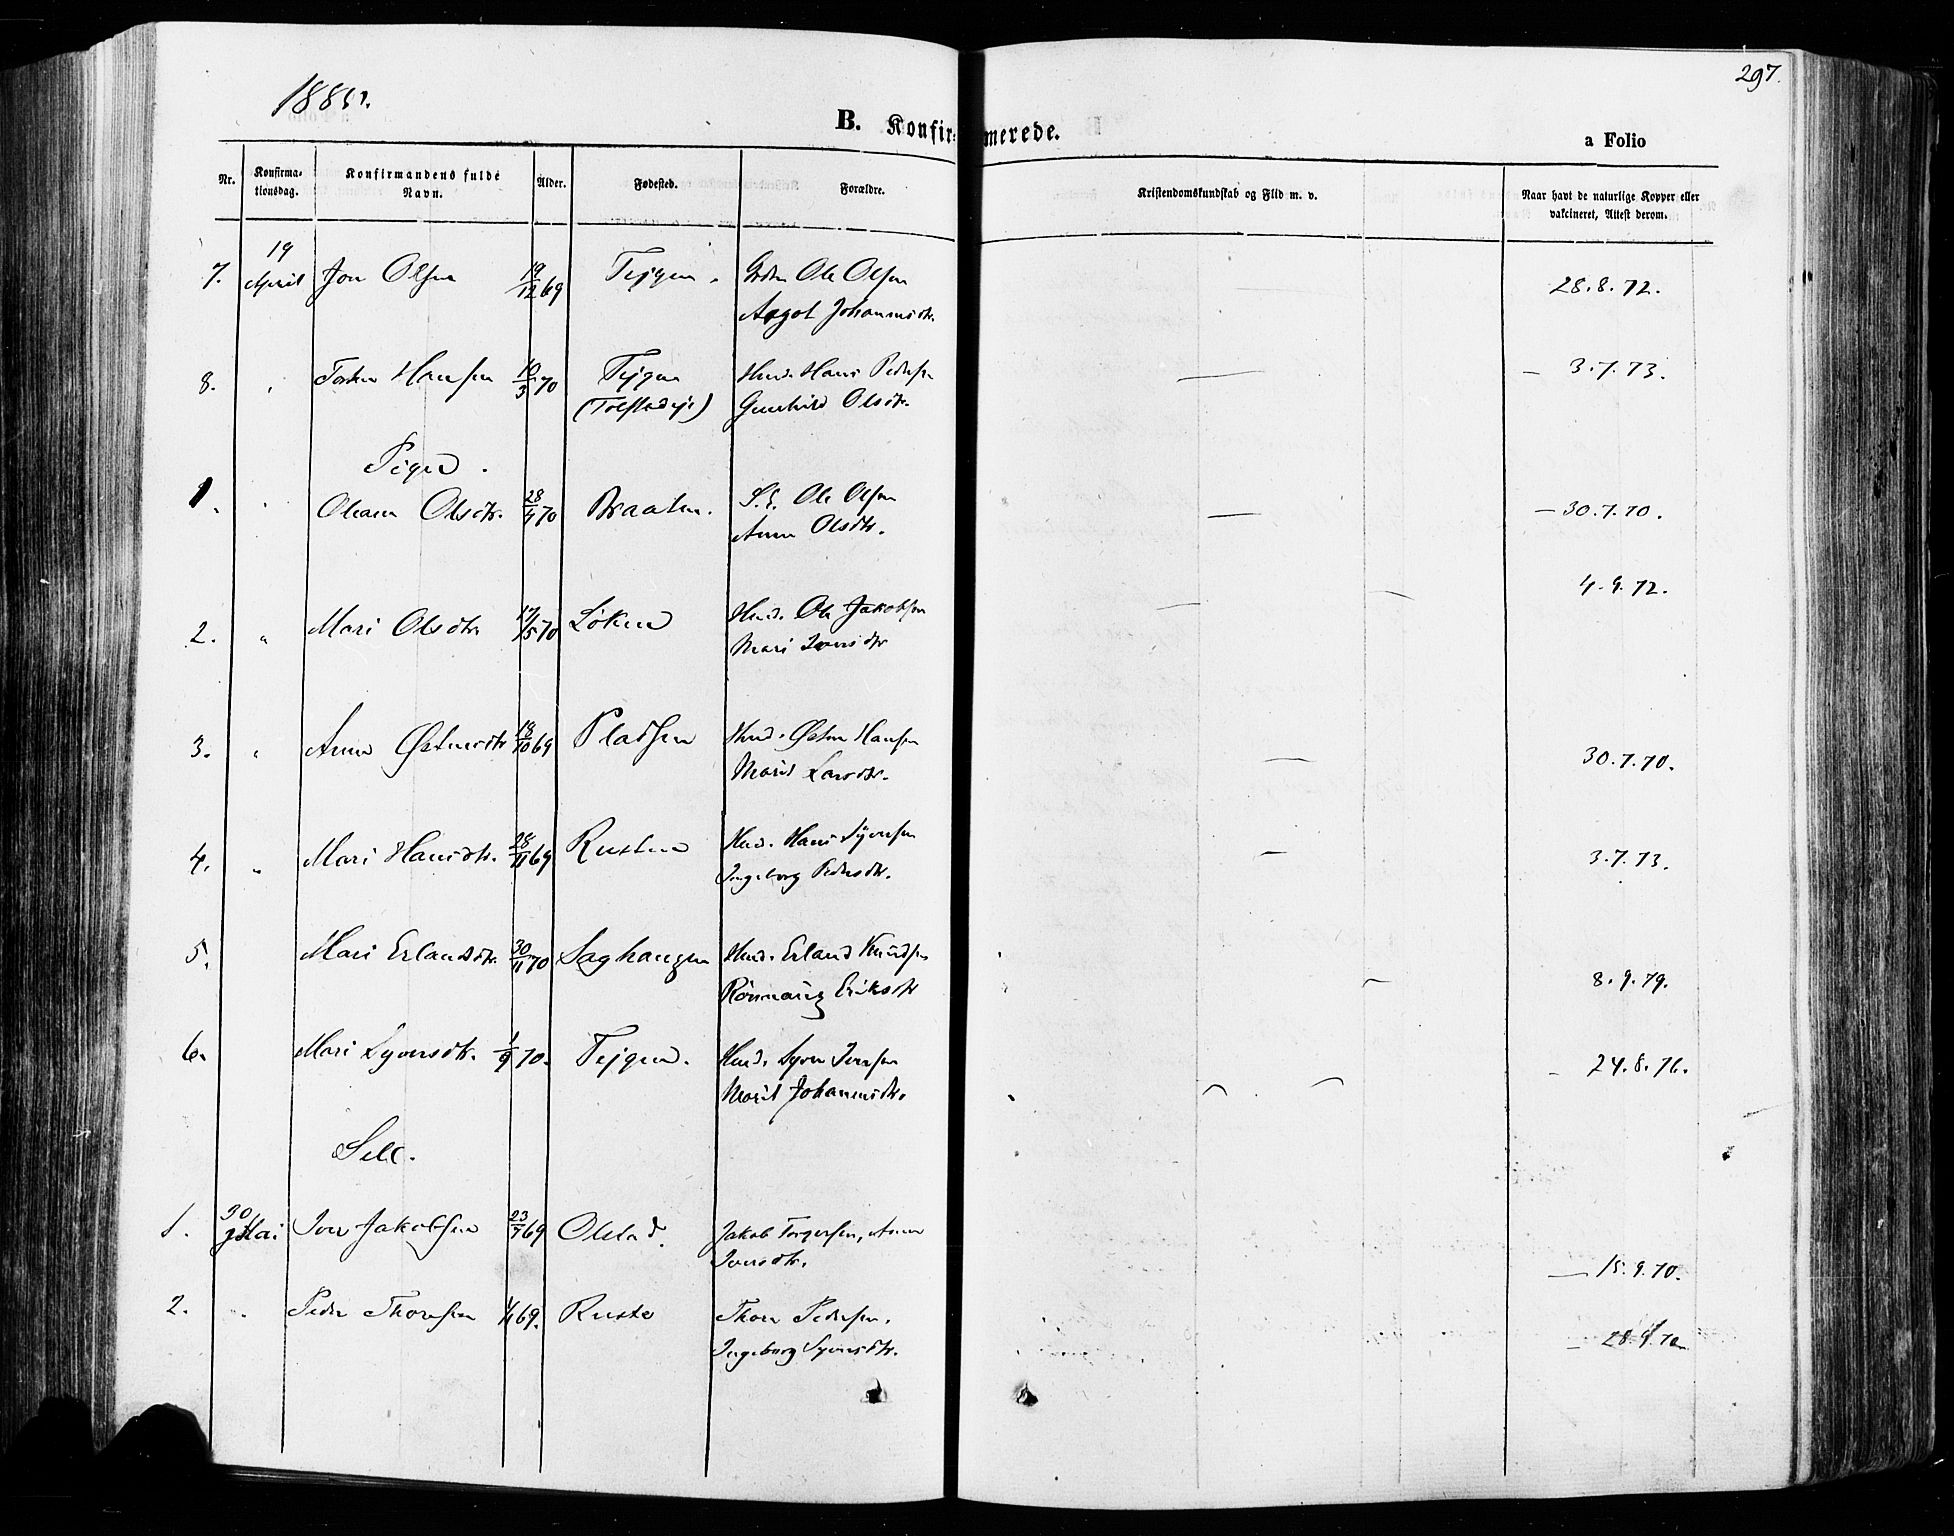 1885.
297.
B. Konfirmerede.
a Folio
Nr. Konfirmationsdag. Konfirmandens fulde Navn. Alder. Fødested. Forældre. Kristendomskundskab og Flid m. v. Naar havt de naturlige Kopper eller vakcineret, Attest derom.
7. 19 April Jon Olsen 19/12 69 Ole Olsen 28.8.72.
Johannesdtr.
8. " Hansen 10/3 70 Hmd. Hans Pedersen — 3.7.73.
Olsdtr.
Piger.
1. " Olsdtr. 28/4 70 Braaten. S.E. Ole Olsen — 30.7.70.
Anne Olsdtr.
2. " Mari Olsdtr. 17/5 70 Løken Hmd. Ole Jakobsen 4.9.72.
Mari Iversdtr
3. " Anne Østensdtr 18/10 69 Pladsen Hmd. Østen Hansen 30.7.70.
Marit Larsdtr.
4. " Mari Hansdtr. 28/11 69 Rusten Hmd. Hans Syversen 3.7.73.
Ingeborg Pedersdtr.
5. Mari Erlandsdtr. 30/11 70 Saghaugen Hmd. Erland Knudsen 8.9.79.
Rønnaug Eriksdtr
6. Mari Syversdtr. 1/9 70. Hmd. Syver Iversen 24.8.76.
Marit Johannesdtr.
Sell.
1. 30 Mai Iver Jakobsen 23/7 69 Olstad. Jakob Torgersen, Anne
Iversdtr. — 15.9.70.
2. " Peder Thoresen 69. Ruste Thore Pedersen.
Ingeborg Syversdtr.